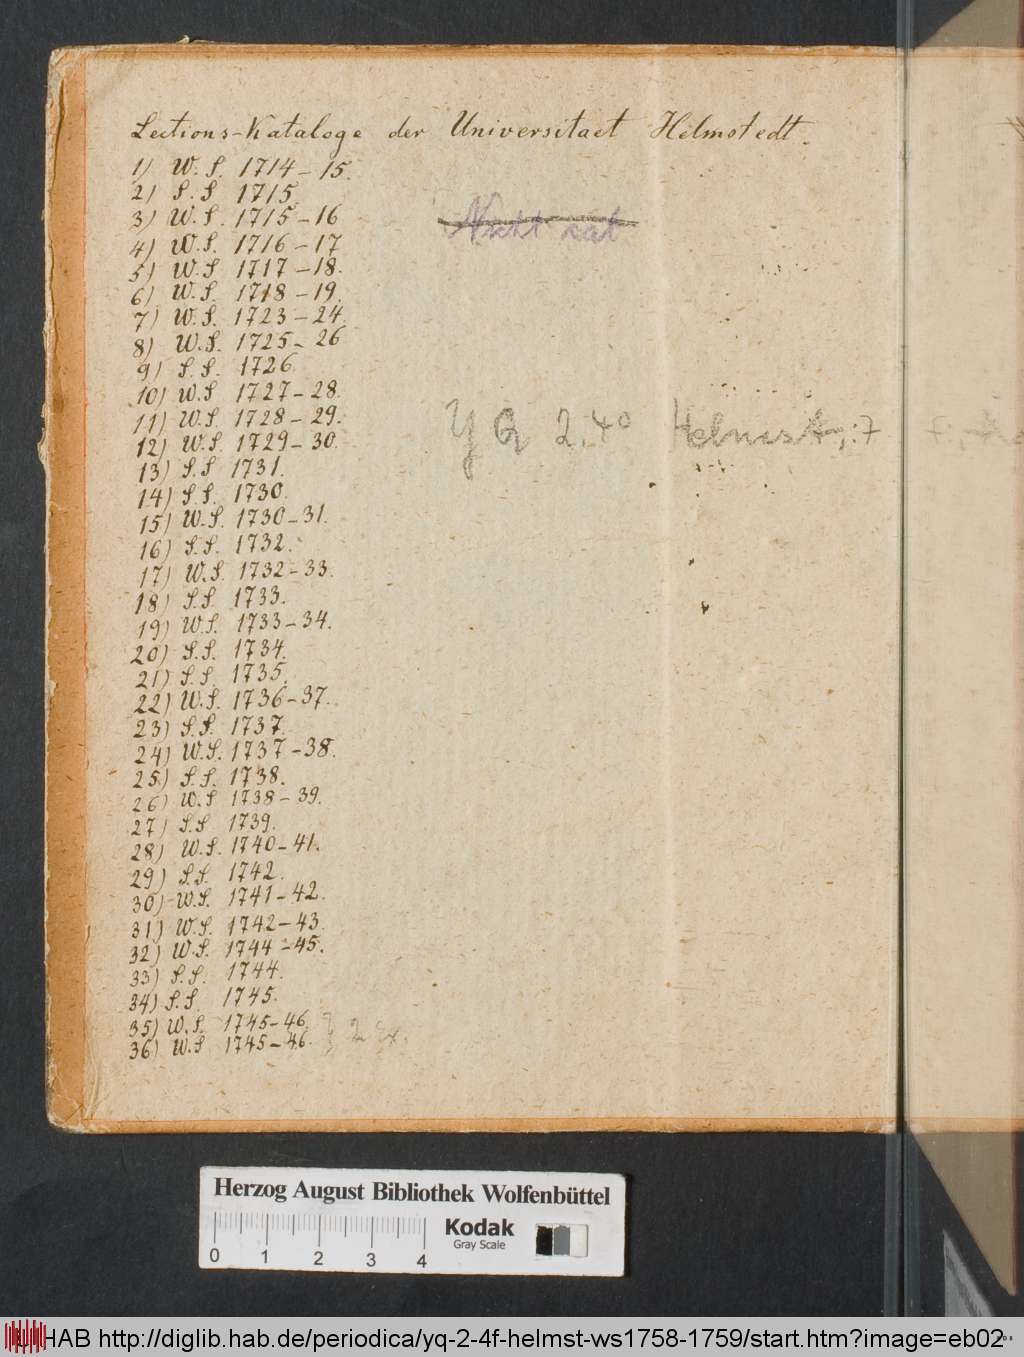 Lections-Kataloge der Universitaet Helmstedt.
1) W. S. 1714-15.
2) S. S 1715.
3) W. S. 1715-16
4) W. S. 1716-17
5) W. S 1717-18.
6) W. S. 1718-19.
7) W. S. 1723-24.
8) W. S. 1725-26
9) S. S. 1726.
10) W. S 1727-28.
11) W. S. 1728-29.
12) W. S. 1729-30.
13) S. S 1731.
14) S. S. 1730.
15) W. S. 1730-31.
16) S. S. 1732.
17) W. S. 1732-33.
18) S. S. 1733.
19) W. S. 1733-34.
20) S. S. 1734.
21) S. S. 1735.
22) W. S. 1736-37.
23) S. S. 1737.
24) W. S. 1737-38.
25) S. S. 1738.
26) W. S 1738-39.
27) S. S 1739.
28) W. S. 1740-41.
29) S. S. 1742.
30) W. S. 1741-42.
31) W. S. 1742-43.
32) W. S. 1744-45.
33) S. S. 1744.
34) S. S. 1745.
35) W. S. 1745-46.
36) W. S 1745-46. } 2 Ex.
Nicht kat
YQ 2.4° Helmst.:7
Herzog August Bibliothek Wolfenbüttel
0 1 2 3 4
Kodak
Gray Scale
HAB http://diglib.hab.de/periodica/yq-2-4f-helmst-ws1758-1759/start.htm?image=eb02